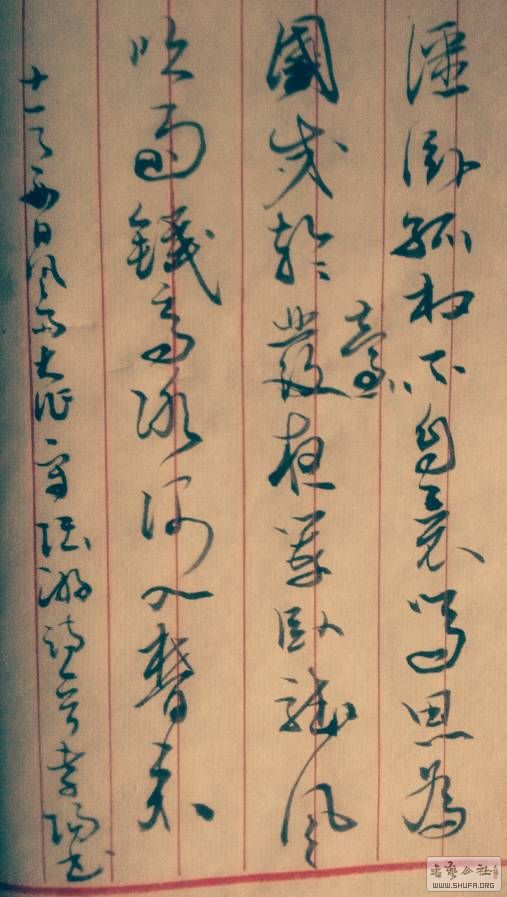 僵卧孤村不自哀尚思為
國戍輪臺夜闌卧聽風
吹雨鐵馬冰河入夢來
十一月四日風雨大作宋陸游詩孝陽書
書藝公社
WWW.SHUFA.ORG